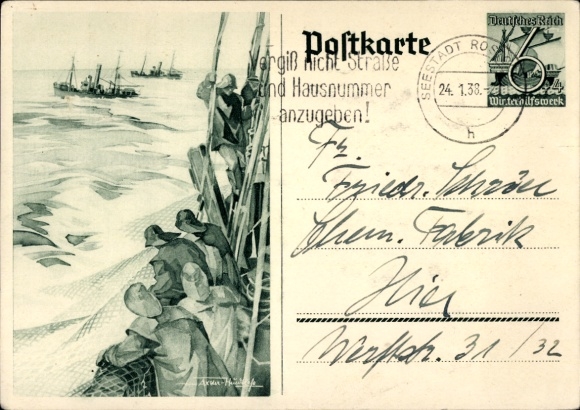 Postkarte
Deutsches Reich
6+4
Winterhilfswerk
Vergiß nicht Straße
und Hausnummer
anzugeben!
SEESTADT RO
24.1.38.
h
Fr.
Friedr. Schröder
Chem. Fabrik
Hier
Werftstr. 31/32